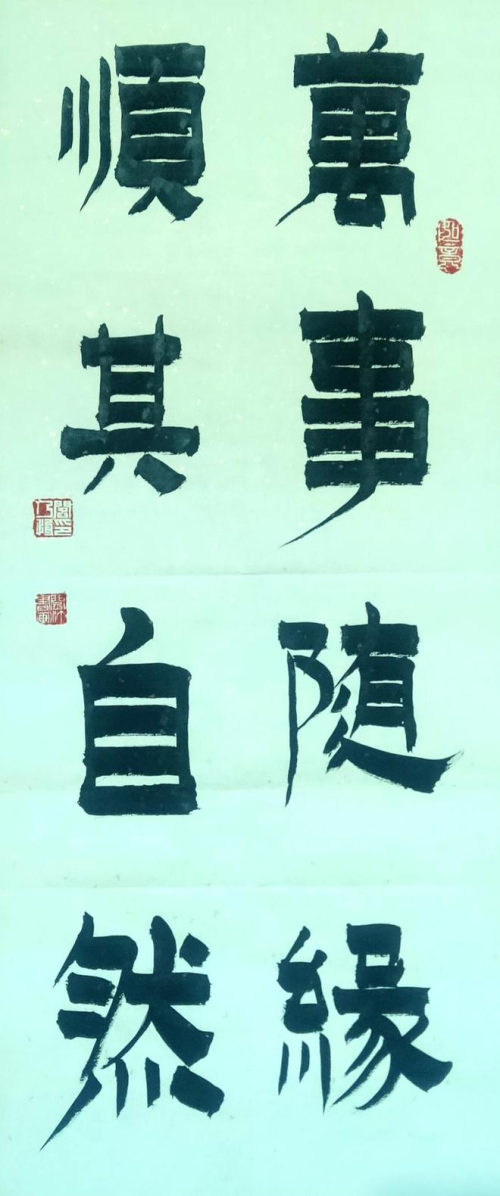 萬事随緣
順其自然